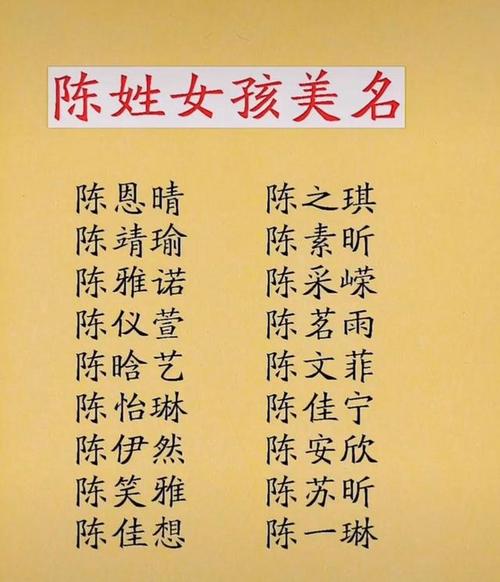 陈姓女孩美名
陈恩晴 陈之琪
陈靖瑜 陈素昕
陈雅诺 陈采嵘
陈仪萱 陈茗雨
陈晗艺 陈文菲
陈怡琳 陈佳宁
陈伊然 陈安欣
陈笑雅 陈苏昕
陈佳想 陈一琳